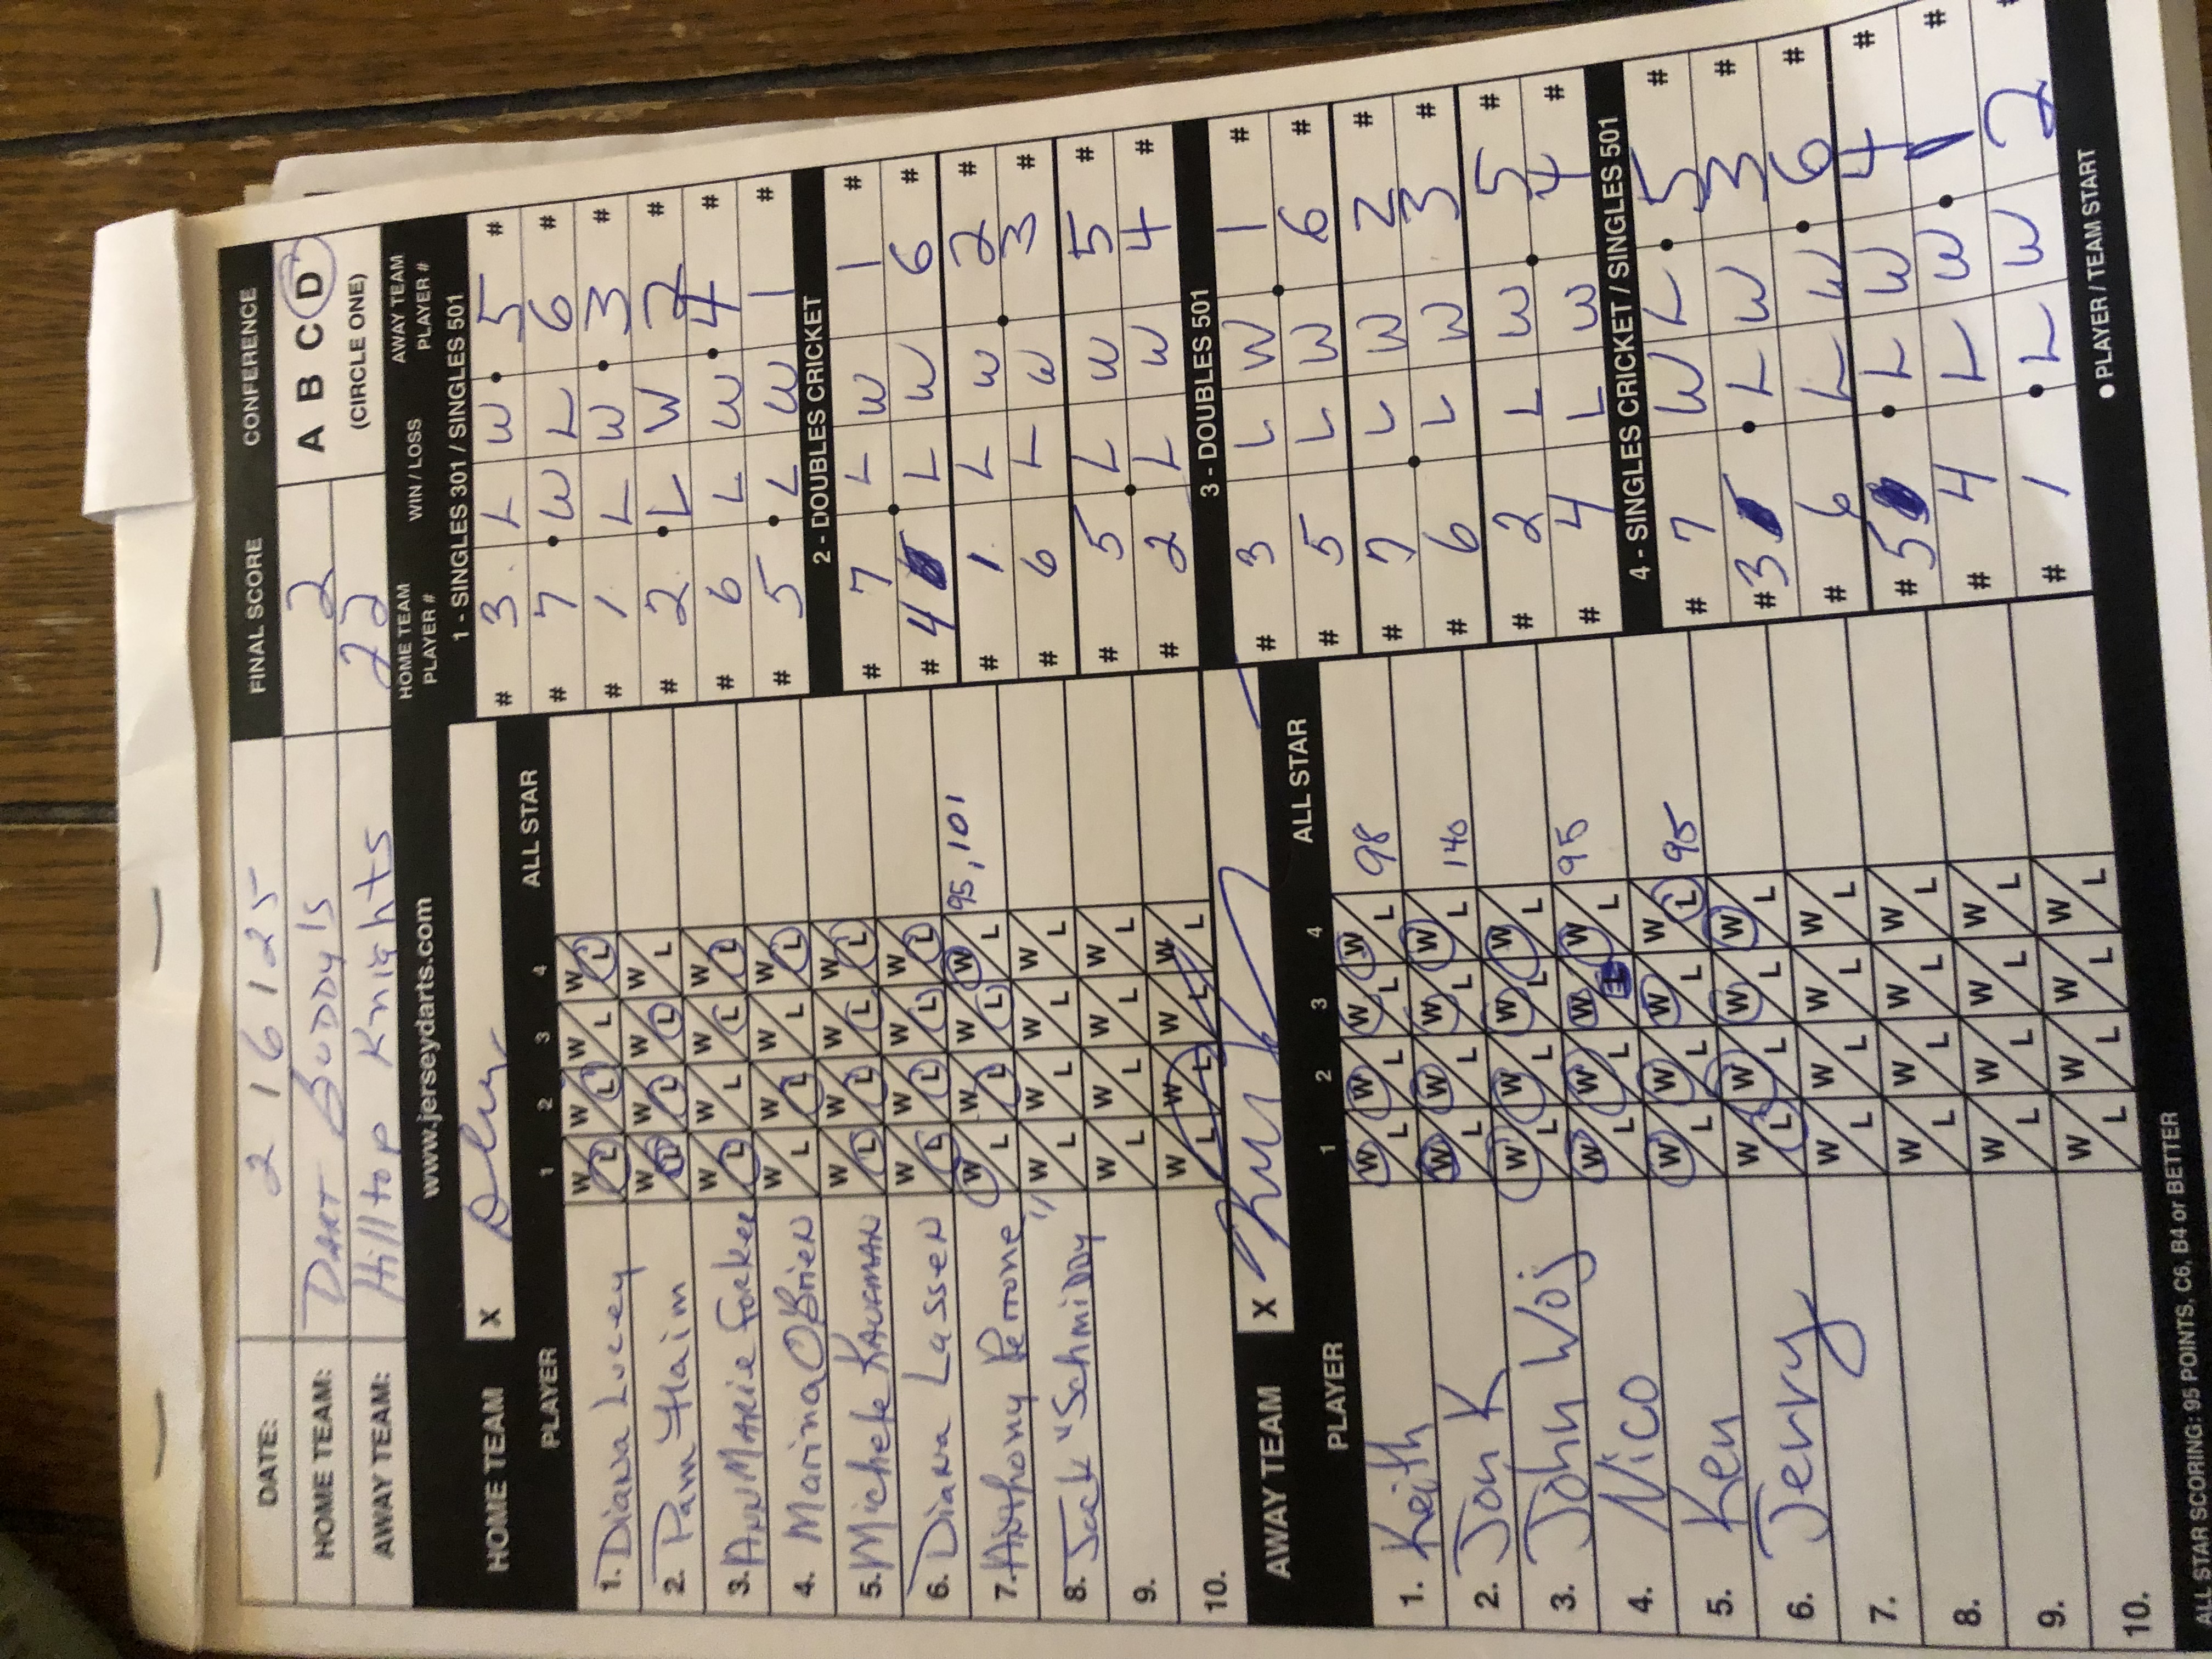 DATE: 2 16 1 25 FINAL SCORE CONFERENCE
HOME TEAM: DART BUDDY'S 2 A B C D
AWAY TEAM: Hilltop Knights 22 (CIRCLE ONE)
www.jerseydarts.com
HOME TEAM PLAYER # WIN / LOSS AWAY TEAM PLAYER #
HOME TEAM X
PLAYER 1 2 3 4 ALL STAR
1. Diana Lucey W L W L W L W L
2. Pam Haim W L W L W L W L
3. ANNMARIE Forker W L W L W L W L
4. Marina O'Brien W L W L W L W L
5. Michele KAUFMAN W L W L W L W L
6. Diana Lassen W L W L W L W L
7. Anthony Perrone W L W L W L W L 95, 101
8. Jack "Schmiddy" W L W L W L W L
9. W L W L W L W L
10. W L W L W L W L
X
AWAY TEAM
PLAYER 1 2 3 4 ALL STAR
1. Keith W L W L W L W L 98
2. Jon K W L W L W L W L 140
3. John Woj W L W L W L W L
4. Nico W L W L W L W L 95
5. Ken W L W L W L W L 95
6. Jerry W L W L W L W L
7. W L W L W L W L
8. W L W L W L W L
9. W L W L W L W L
10. W L W L W L W L
ALL STAR SCORING: 95 POINTS, C6, B4 or BETTER
1 - SINGLES 301 / SINGLES 501
# 3 L W 5 #
# 7 W L 6 #
# 1 L W 3 #
# 2 L W 2 #
# 6 L W 4 #
# 5 L W 1 #
2 - DOUBLES CRICKET
# 7 L W 1 #
# 4 L W 6 #
# 1 L W 2 #
# 6 L W 3 #
# 5 L W 5 #
# 2 L W 4 #
3 - DOUBLES 501
# 3 L W 1 #
# 5 L W 6 #
# 7 L W 2 #
# 6 L W 3 #
# 2 L W 5 #
# 4 L W 4 #
4 - SINGLES CRICKET / SINGLES 501
# 7 W L 5 #
# 3 L W 3 #
# 6 L W 6 #
# 5 L W 4 #
# 4 L W 1 #
# 1 L W 2 #
● PLAYER / TEAM START